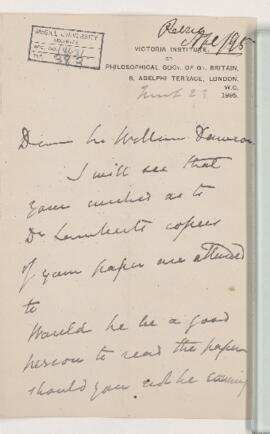 McGILL UNIVERSITY
ARCHIVES
ACC. NO.
REF.
VICTORIA INSTITUTE,
OR
PHILOSOPHICAL SOCY. OF GT. BRITAIN,
8, ADELPHI TERRACE, LONDON.
W.C.
1895.
Dear Sir William Dawson
I will see that
your wishes as to
Dr Lamberts copies
of your paper are attended
to
Would he be a good
person to read the paper
should you not be coming